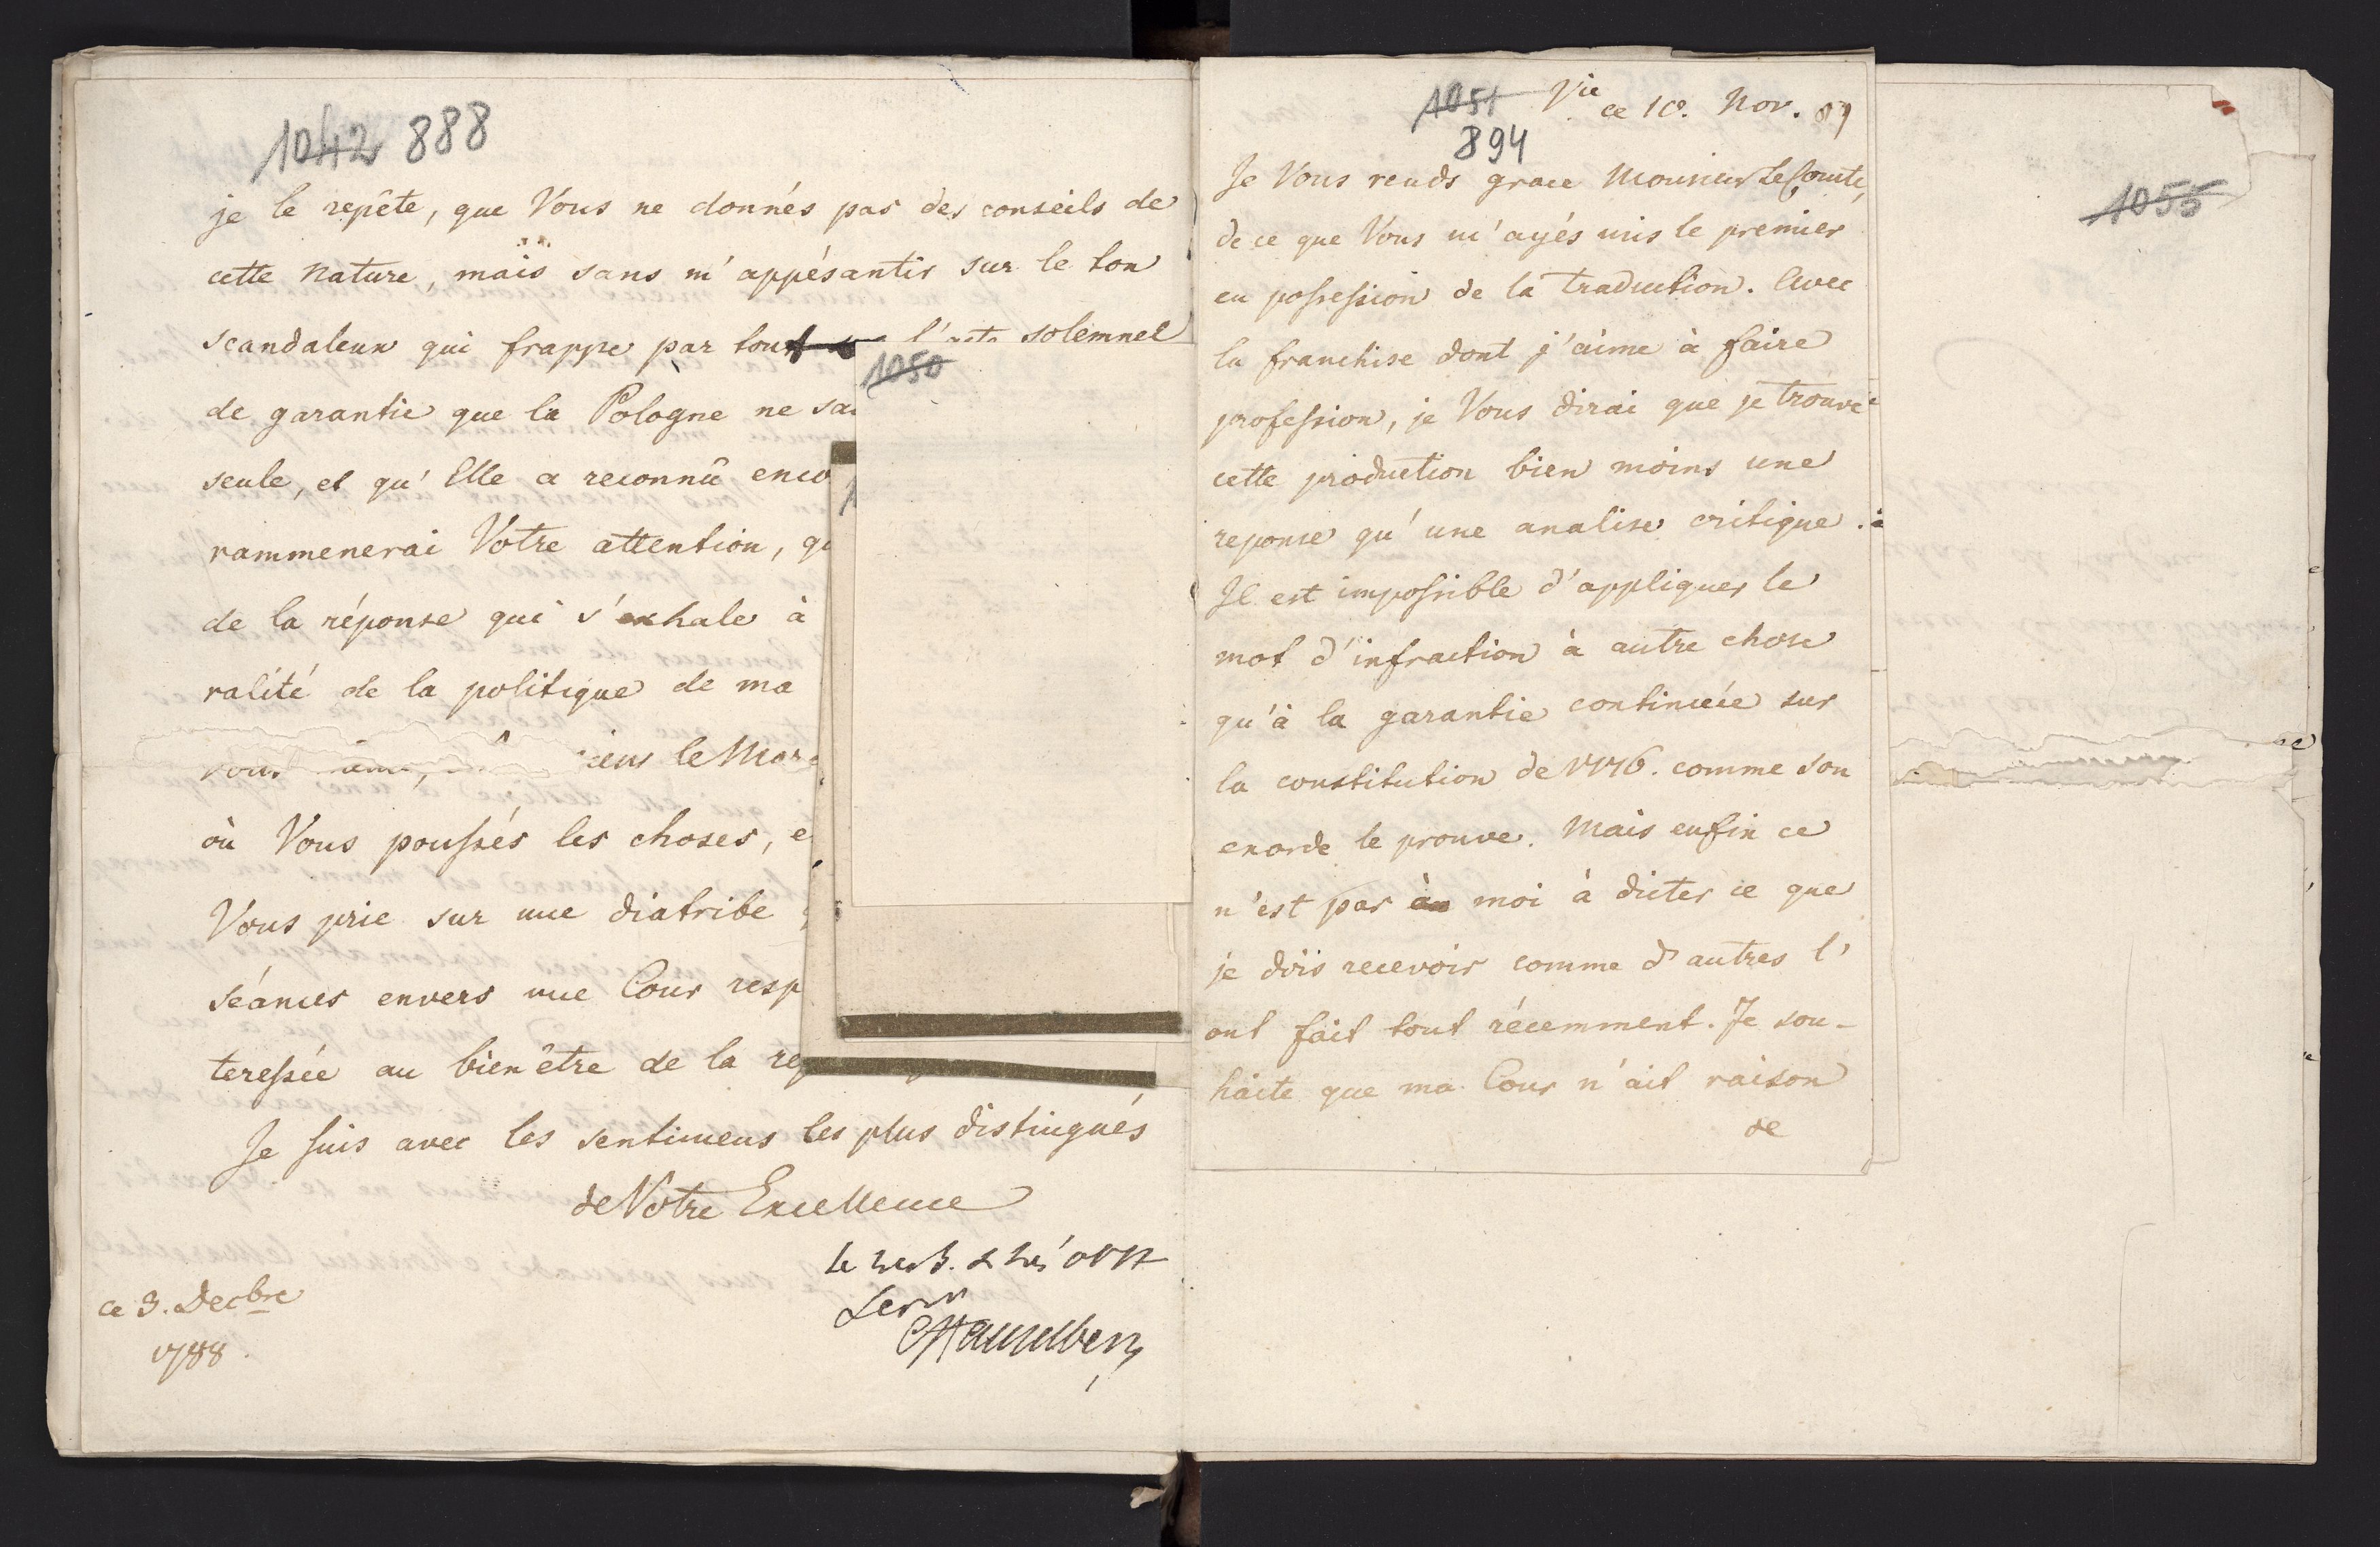 1042 888
je le repête, que Vous ne donnés pas des conseils de
cette Nature, mais sans m'appésantir sur le ton
scandaleux qui frappe par tout l'acte solemnel
de garantie que la Pologne ne sa
seule, et qu'Elle a reconnû enco
rammenerai Votre attention, qu
de la réponse qui s'exhale à
ralité de la politique de ma
vous le Mar
où Vous poussés les choses, e
Vous prie sur une diatribe
séances envers une Cour resp
teressée au bien être de la re
Je suis avec les sentimens les plus distingués
de Votre Excellence
ce 3. Decbre
1788.
1050
1051
ce 10. Nov. 89
894
Je Vous rends grace Monsieur le Comte,
de ce que Vous m'ayés mis le premier
en possession de la traduction. Avec
la franchise dont j'aime à faire
profession, je Vous dirai que je trouve
cette production bien moins une
reponse qu'une analise critique.
Il est impossible d'appliquer le
mot d'infraction à autre chose
qu'à la garantie continuée sur
la constitution de 1776. comme son
exorde le prouve. Mais enfin ce
n'est pas à moi à dicter ce que
je dois recevoir comme d'autres l'
ont fait tout récemment. Je sou-
haite que ma Cour n'ait raison
de
1055